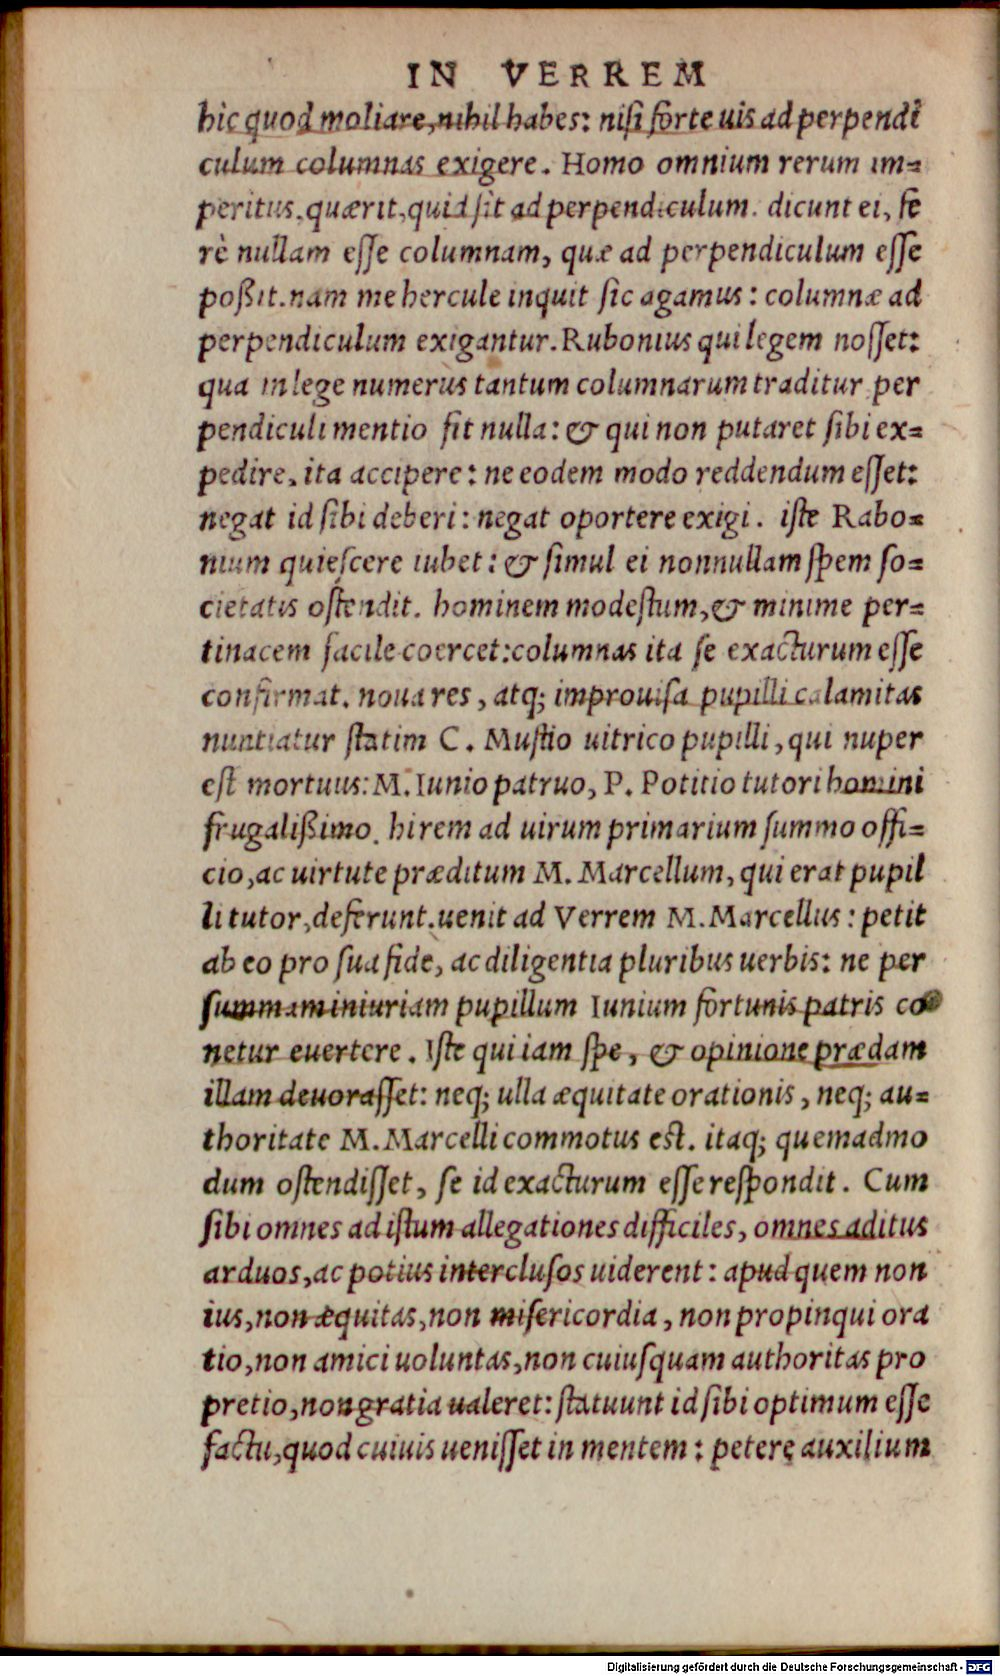 IN VERREM
hic quod moliare, nihil habes: nisi forte uis ad perpendi
culum columnas exigere. Homo omnium rerum im=
peritus, quærit, quid sit ad perpendiculum. dicunt ei, fe
rè nullam esse columnam, quæ ad perpendiculum esse
poßit. nam mehercule inquit sic agamus: columnæ ad
perpendiculum exigantur. Rubonius qui legem nosset:
qua in lege numerus tantum columnarum traditur per
pendiculi mentio fit nulla: & qui non putaret sibi ex=
pedire, ita accipere: ne eodem modo reddendum esset:
negat id sibi deberi: negat oportere exigi. iste Rabo=
nium quiescere iubet: & simul ei nonnullam spem so=
cietatis ostendit. hominem modestum, & minime per=
tinacem facile coercet: columnas ita se exacturum esse
confirmat. noua res, atq; improuisa pupilli calamitas
nuntiatur statim C. Mustio uitrico pupilli, qui nuper
est mortuus: M. Iunio patruo, P. Potitio tutori homini
frugalißimo. hi rem ad uirum primarium summo offi=
cio, ac uirtute præditum M. Marcellum, qui erat pupil
li tutor, deferunt. uenit ad Verrem M. Marcellus: petit
ab eo pro sua fide, ac diligentia pluribus uerbis: ne per
summam iniuriam pupillum Iunium fortunis patris co
netur euertere. Iste qui iam spe, & opinione prædam
illam deuorasset: neq; ulla æquitate orationis, neq; au=
thoritate M. Marcelli commotus est. itaq; quemadmo
dum ostendisset, se id exacturum esse respondit. Cum
sibi omnes ad istum allegationes difficiles, omnes aditus
arduos, ac potius interclusos uiderent: apud quem non
ius, non æquitas, non misericordia, non propinqui ora
tio, non amici uoluntas, non cuiusquam authoritas pro
pretio, non gratia ualeret: statuunt id sibi optimum esse
factu, quod cuiuis uenisset in mentem: petere auxilium
Digitalisierung gefördert durch die Deutsche Forschungsgemeinschaft - DFG